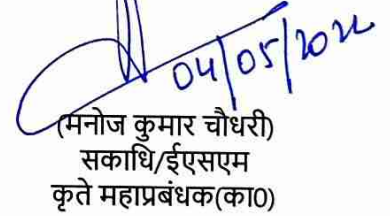 04/05/2022
(मनोज कुमार चौधरी)
सकाधि/ईएसएम
कृते महाप्रबंधक(का0)